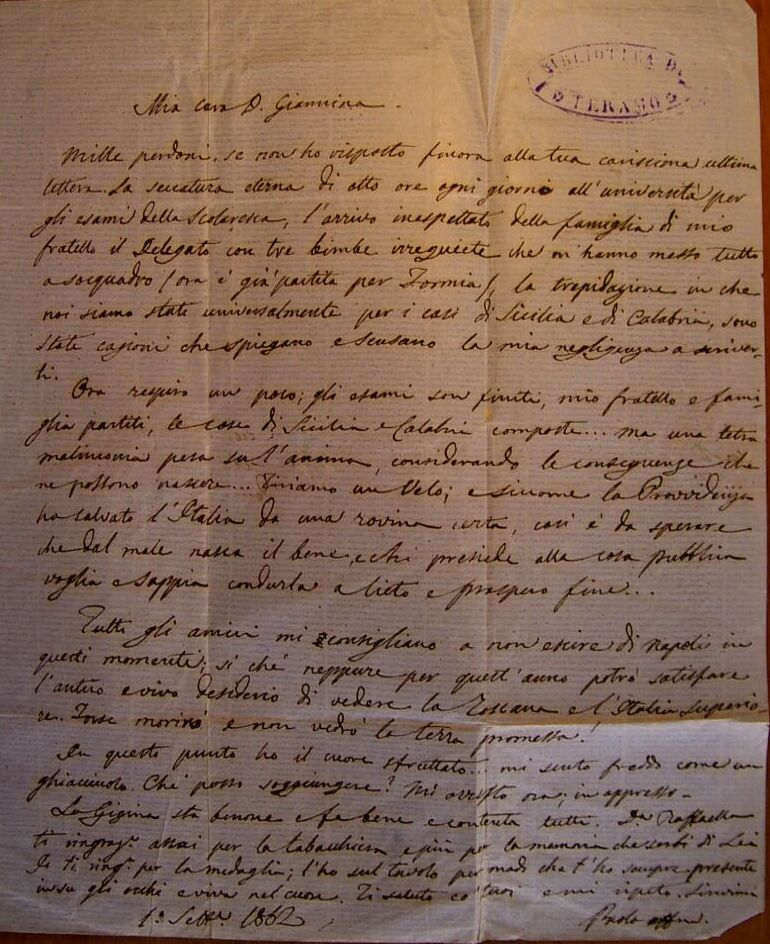 BIBLIOTECA D
TERAMO
Mia cara D. Giannina.
Mille perdoni, se non ho risposto finora alla tua carissima ultima
lettera. La seccatura eterna di otto ore ogni giorno all'università per
gli esami della Scolaresca, l'arrivo inaspettato della famiglia di mio
fratello il Delegato con tre bimbe irrequiete che m'hanno messo tutto
a soqquadro (ora è già partita per Formia), la trepidazione in che
noi siamo stati universalmente per i casi di Sicilia e di Calabria, sono
state cagioni che spiegano e scusano la mia negligenza a scriver-
ti.
Ora respiro un poco; gli esami son finiti, mio fratello e fami-
glia partiti, le cose di Sicilia e Calabria composte... ma una tetra
malinconia pesa su l'anima, considerando le conseguenze che
ne possono nascere... Tiriamo un Velo; e siccome la Provvidenza
ha salvato l'Italia da una rovina certa, così è da sperare
che dal male nasca il bene, e chi presiede alla cosa pubblica
voglia e sappia condurla a lieto e prospero fine...
Tutti gli amici mi consigliano a non escire di Napoli in
questi momenti; si chè neppure per quest'anno potrò satisfare
l'antico e vivo desiderio di vedere la Toscana e l'Italia Superio-
re. Forse morirò e non vedrò la terra promessa!
Da questo punto ho il cuore sfruttato... mi sento freddo come un
ghiacciuolo. Che posso soggiungere? Mi arresto ora; in appresso.
La Gigina sta benone e fa bene e contenta tutti. Da. Raffaella
ti ringraz. assai per la tabacchiera e più per la memoria che serbi di Lei
Io ti ring. per la medaglia; l'ho sul tavolo per modi che t'ho sempre presente
in su gli occhi e viva nel cuore. Ti saluto co' tuoi e mi ripeto.
1o. Sett. 1862
Paolo